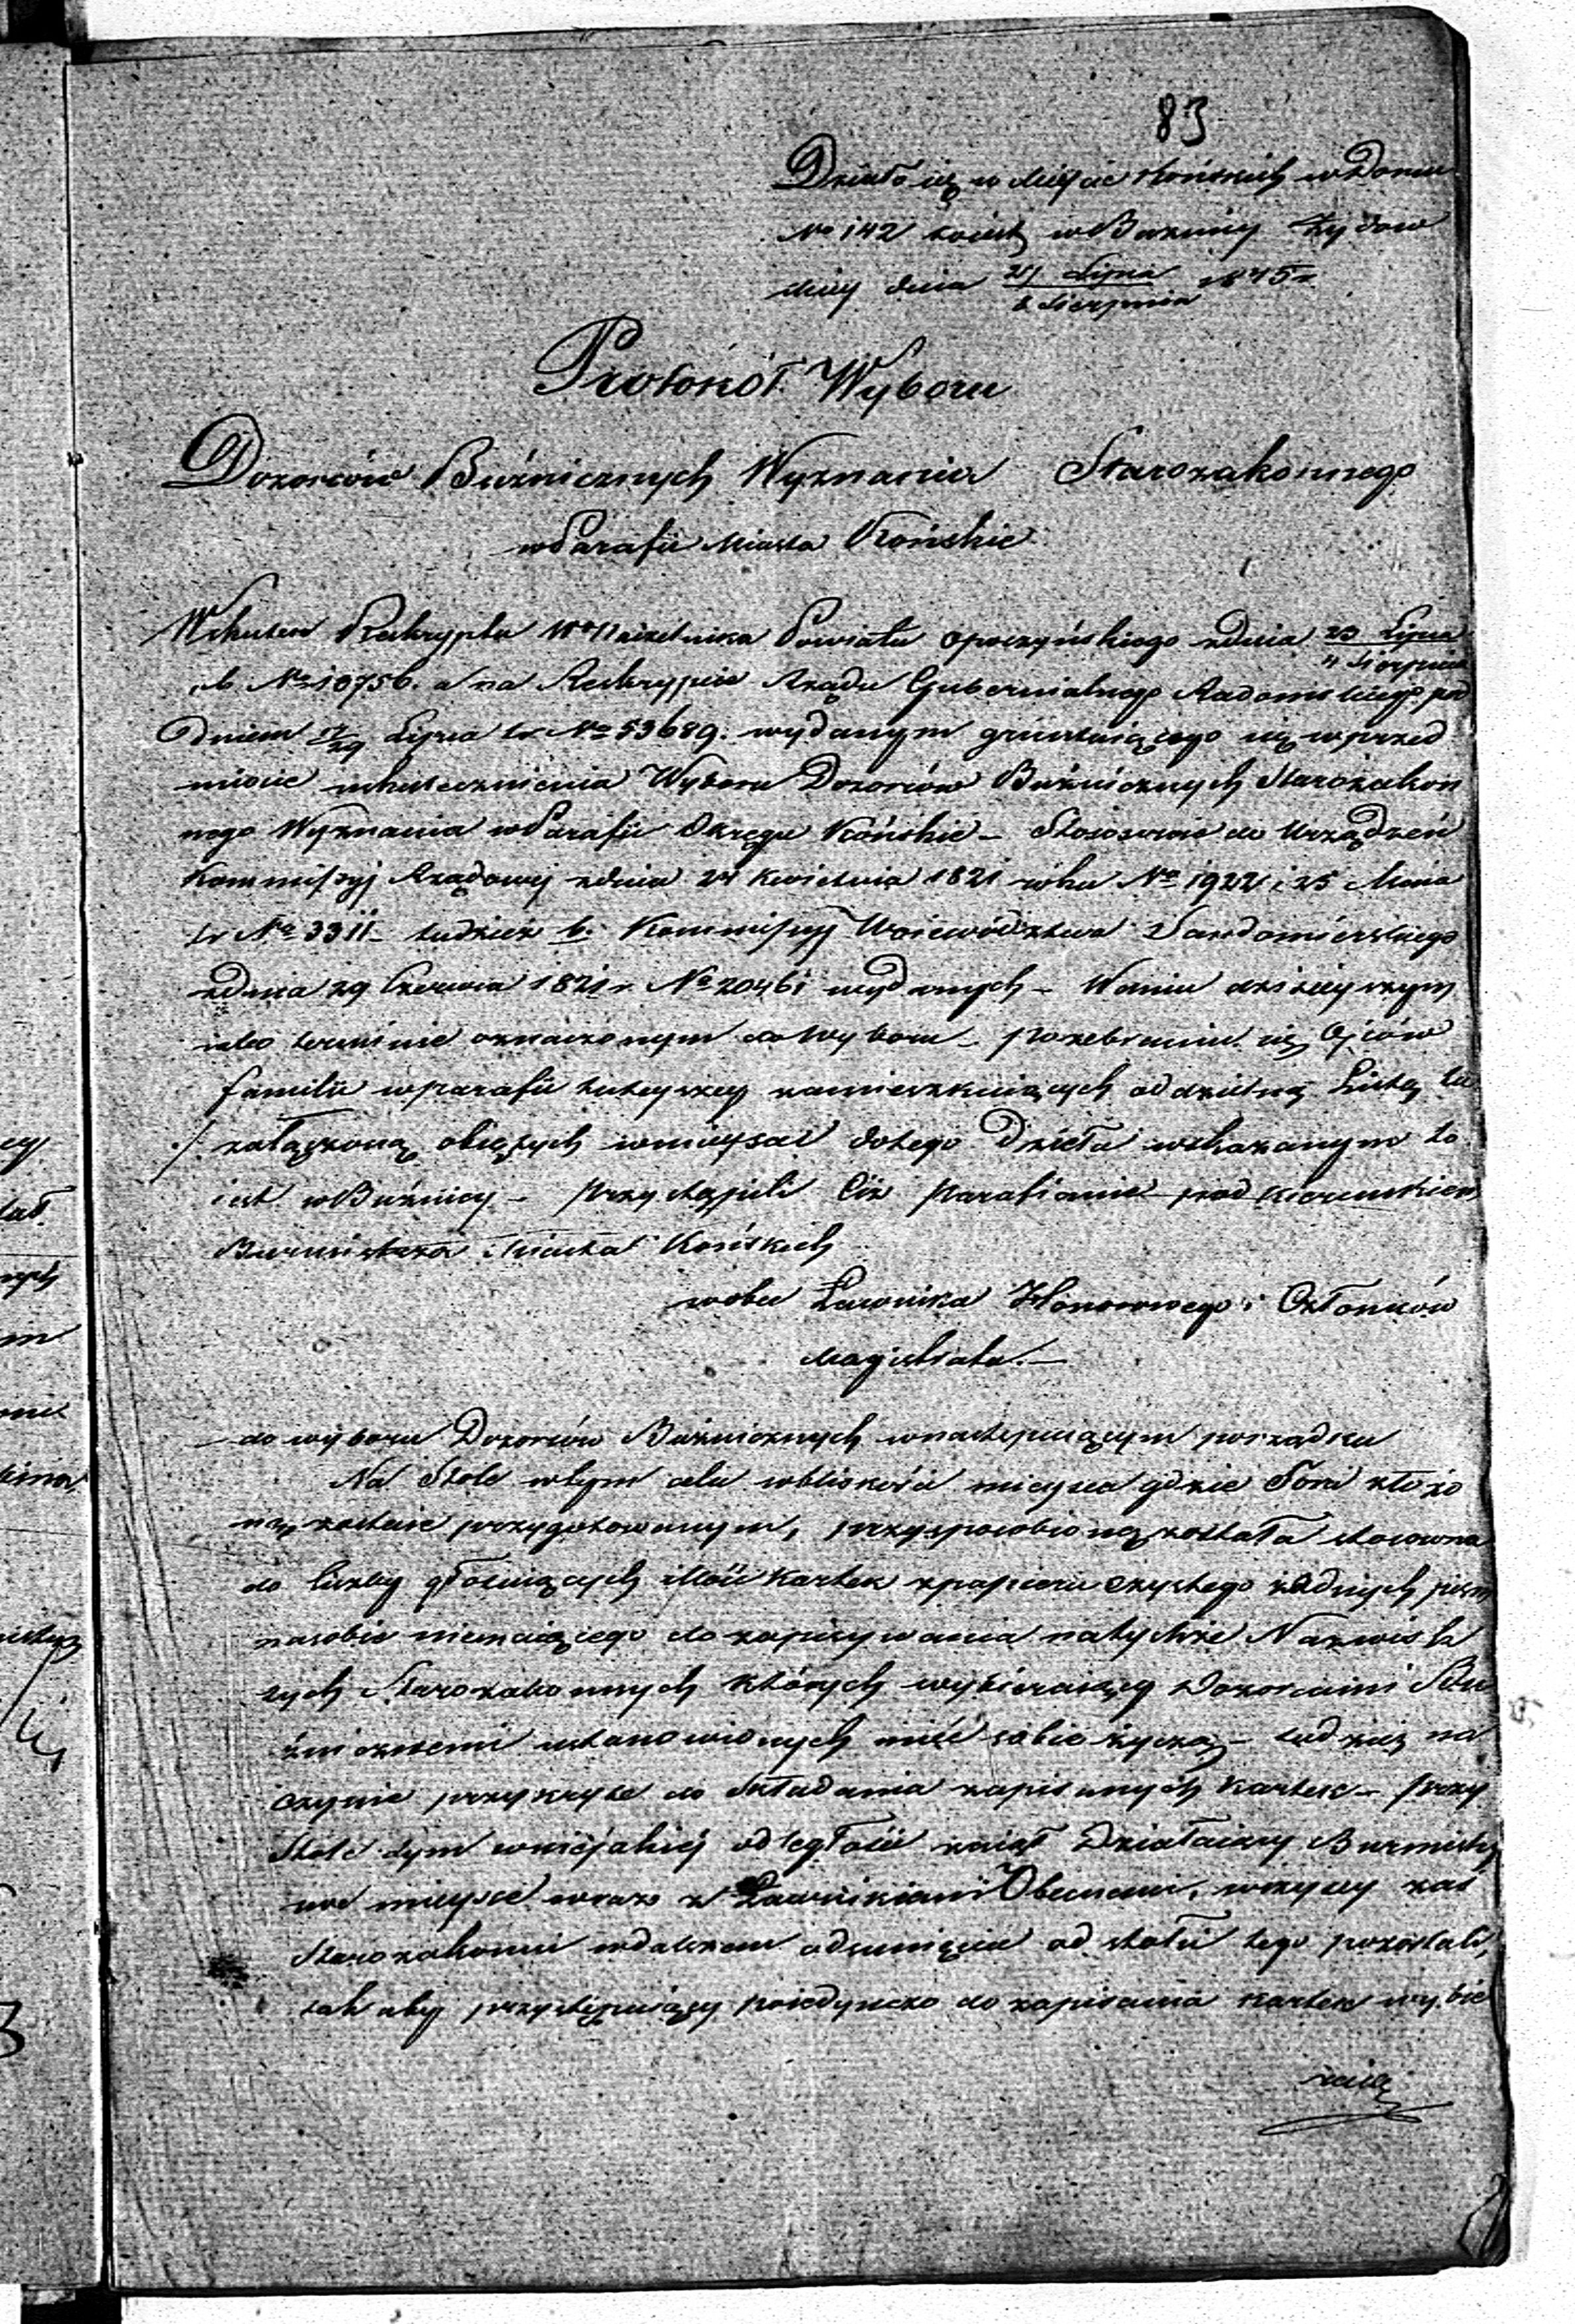 83
Działo się w Mieście Końskich w Domu
No 142 w Bużnicy Żydow
skiey dnia Lipca / Sierpnia 1845 r
Protokół Wyboru
Dozorców Bużnicznych Wyznania Starozakonnego
w Parafii Miasta Końskie
Wskutek Reskryptu Wo Naczelnika Powiatu Opoczyńskiego zdnia 23 Lipca / 4 Sierpnia
r. b. No 10756. a na Reskrypcie Rządu Gubernialnego Radomskiego pod
Dniem 17/29 Lipca br No 53689. wydanym gruntuiącego się wprzed
miocie uskutecznienia Wyboru Dozorców Bużnicznych Starozakon
nego Wyznania w Parafii Okręgu Końskie – Stosownie do Urządzeń
Kommissyj Rządowey zdnia 24 Kwietnia 1821 roku No 1922 i 25 Maia
tr No 3311 – tudzież b. Kommissyj Woiewództwa Sandomierskiego
zdnia 29 Czerwca 1821 r. No 20461 wydanych – W dniu dzisieyszym
iako terminie oznaczonym do Wyboru – po zebraniu się Oyców
familii w parafii tuteyszey zamieszkuiących oddzielną Listą tu
./. załączoną obiętych w mieyscu do tego Dzieła wskazanym to
iest w Bużnicy – przystąpili Ciż Parafianie pod kierunkiem
Burmistrza Miasta Końskich
wobec Ławnika Honorowego i Członków
Magistratu. –
– do wyboru Dozorców Bużnicznych w następuiącym porządku
Na Stole w tym celu w bliskości mieysca gdzie Tora złożo
ną zostaie przygotowanym, przysposobioną została stosowna
do liczby głosuiących ilość kartek z papieru czystego żadnych pism
na sobie niemaiącego do zapisywania na tychże Nazwisk
tych Starozakonnych których wybieraiący Dozorcami Bu
żnicznemi ustanowionych mieć sobie życzą – tudzież na
czynie przykryte do składania zapisanych kartek – przy
Stole tym w nieiakiej odległości zaiął Działaiący Burmistrz
swe mieysce wraz z Ławnikiem Obecnemi, wszyscy zaś
Starozakonni w dalszem odsunięciu od stołu tego pozostali,
tak aby przystępuiący poiedynczo do zapisania kartek wybie
raiący